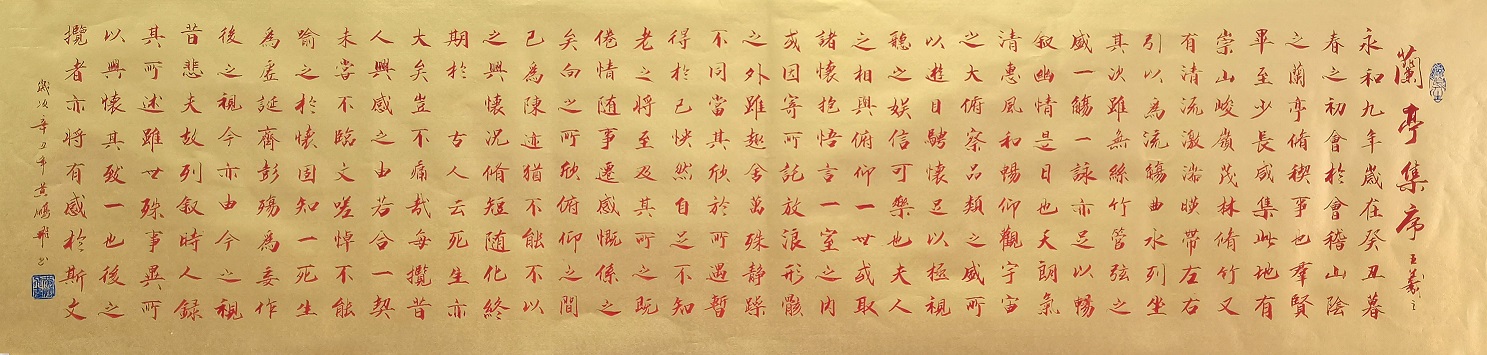 蘭亭集序 王羲之
永和九年歲在癸丑暮
春之初會於會稽山陰
之蘭亭脩稧事也羣賢
畢至少長咸集此地有
崇山峻嶺茂林脩竹又
有清流激湍暎帶左右
引以為流觴曲水列坐
其次雖無絲竹管弦之
盛一觴一詠亦足以暢
叙幽情是日也天朗氣
清惠風和暢仰觀宇宙
之大俯察品類之盛所
以遊目騁懷足以極視
聽之娛信可樂也夫人
之相與俯仰一世或取
諸懷抱悟言一室之內
或因寄所託放浪形骸
之外雖趣舍萬殊静躁
不同當其欣於所遇暫
得於己怏然自足不知
老之將至及其所之既
倦情随事遷感慨係之
矣向之所欣俯仰之間
已為陳迹猶不能不以
之興懷況脩短随化終
期於盡古人云死生亦
大矣豈不痛哉每攬昔
人興感之由若合一契
未嘗不臨文嗟悼不能
喻之於懷固知一死生
為虛誕齊彭殤為妄作
後之視今亦由今之視
昔悲夫故列叙時人録
其所述雖世殊事異所
以興懷其致一也後之
攬者亦將有感於斯文
歲次辛丑年黄鵬飛书